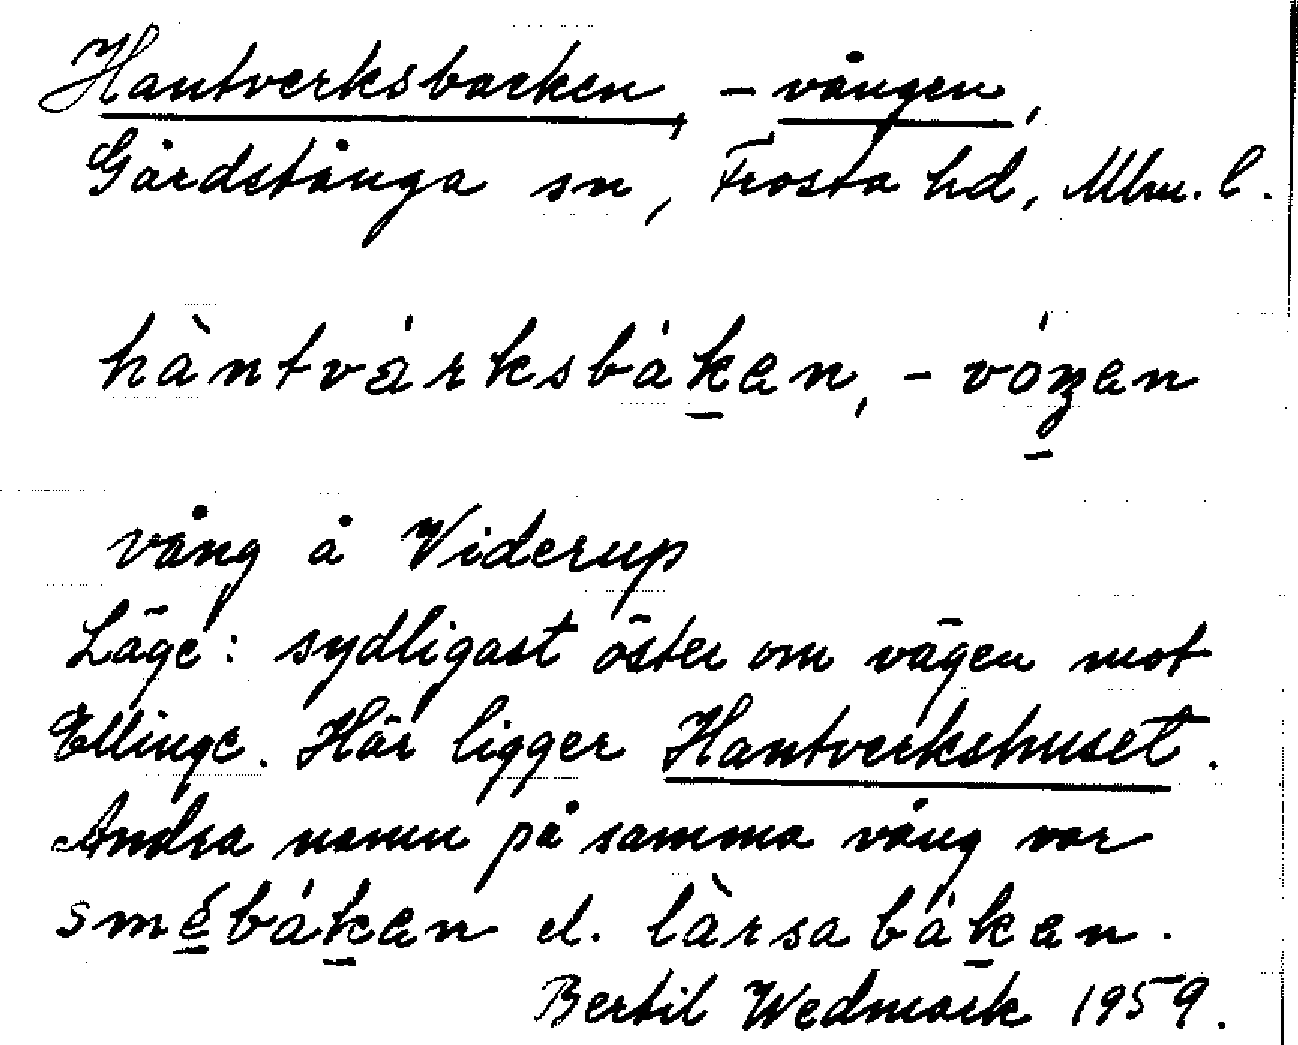 Hantverksbacken, -vången,
Gårdstånga sn, Frosta hd, Mlm. l.
hàntvárksbákan, -vóŋan
vång å Viderup
Läge: sydligast öster om vägen mot
Ellinge. Här ligger Hantverkshuset.
Andra namn på samma vång var
smébákan el. làrsabákan.
Bertil Wedmark 1959.